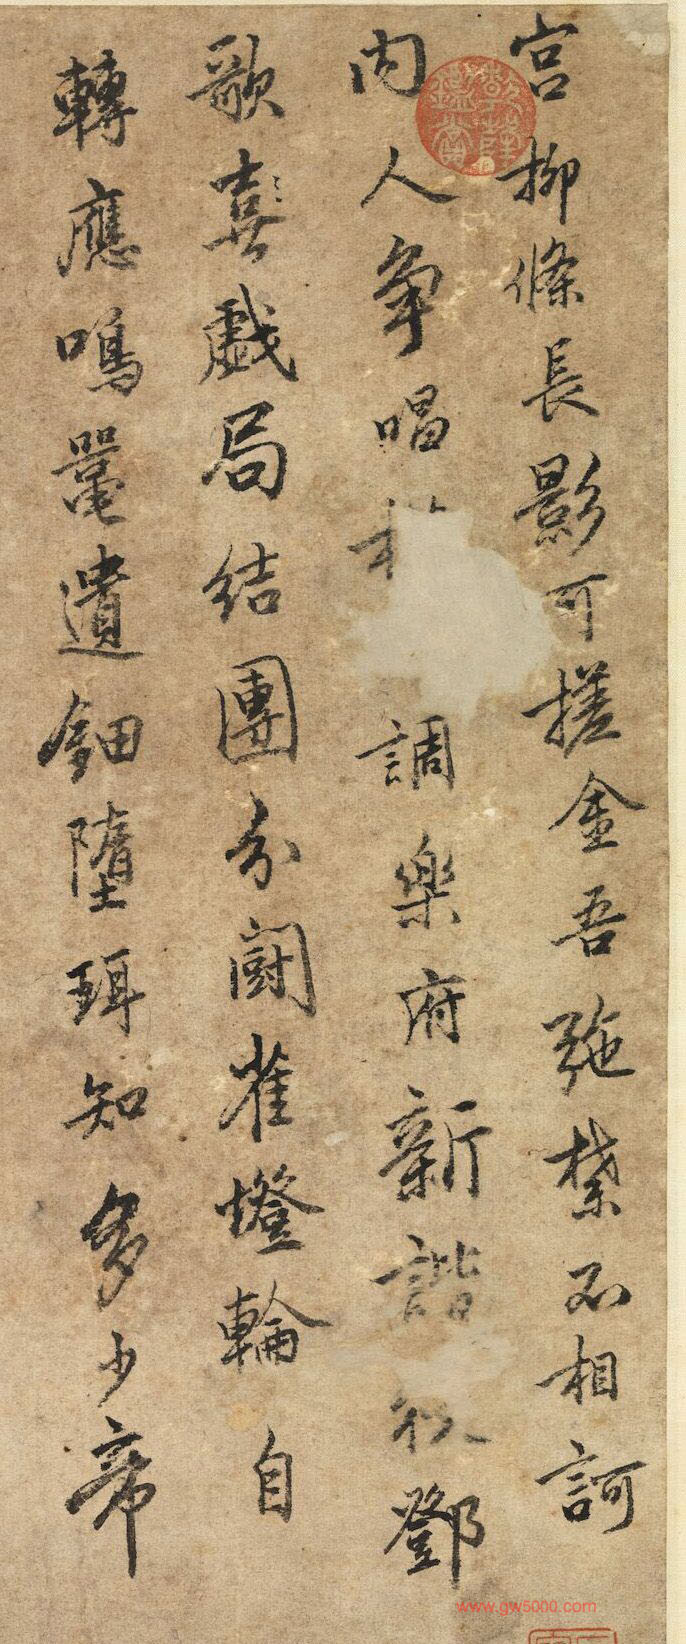 宮柳條長影可搓金吾弛禁不相訶
内人争唱調樂府新諧似鄧
歌喜戲局結團分鬪雀燈輪自
轉應鳴鼍遺鈿墮珥知多少帝
www.gw5000.com